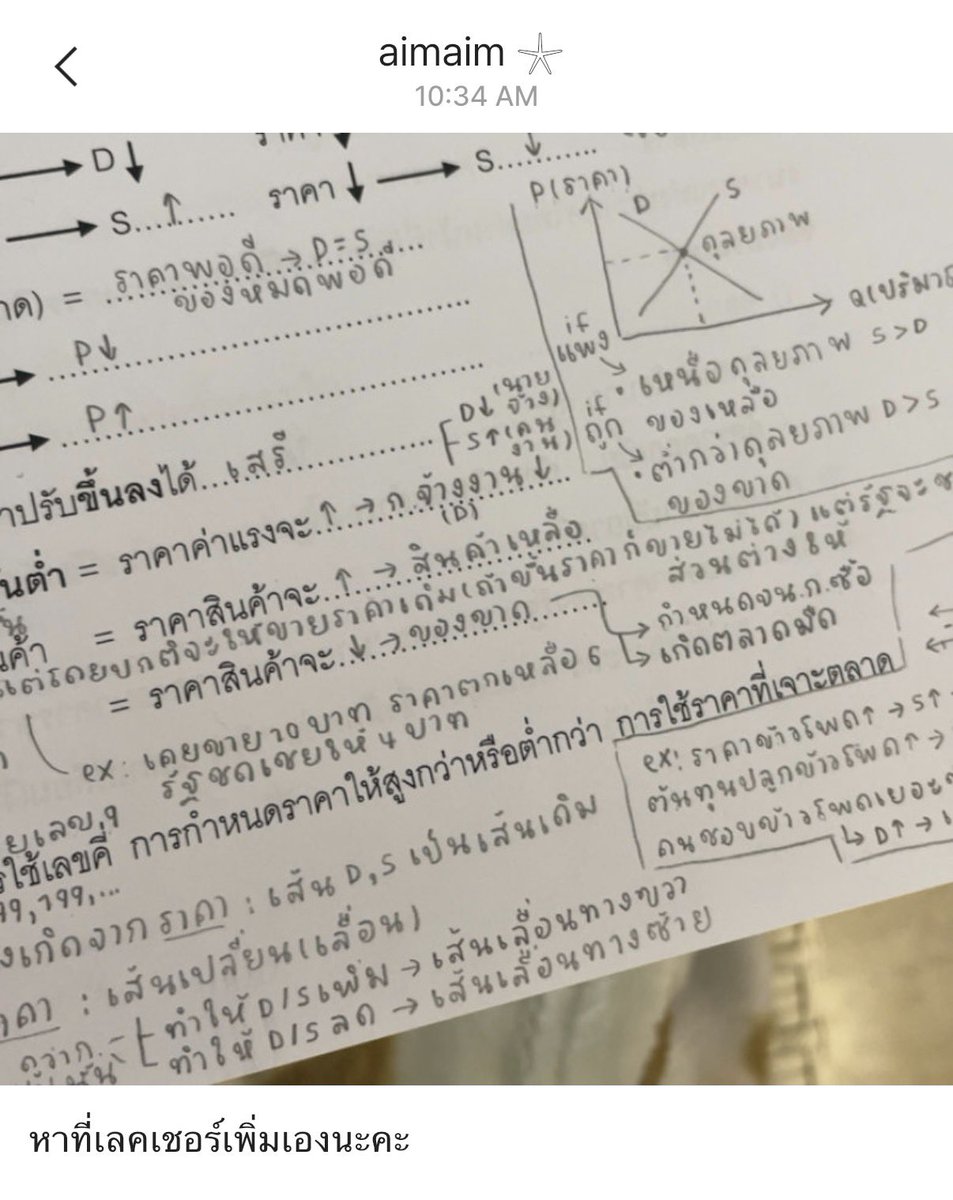 aimaim
10:34 AM
D↓
ราคา↓ → S...↓...
S...↑...
P(ราคา)
D
S
ดุลยภาพ
าด) = ราคาพอดี → D=S
ของหมดพอดี
P↓
P↑
if แพง
• เหนือดุลยภาพ S>D
ของเหลือ
if ถูก
• ต่ำกว่าดุลยภาพ D>S
ของขาด
าปรับขึ้นลงได้...เสรี
D↓ (นายจ้าง)
S↑ (คนงาน)
นต่ำ = ราคาค่าแรงจะ ↑ → ก.จ้างงาน ↓
(D)
= ราคาสินค้าจะ ↑ → สินค้าเหลือ
แต่โดยปกติจะให้ขายราคาเดิม (ถ้าขึ้นราคาก็ขายไม่ได้) แต่รัฐจะ
ส่วนต่างให้
= ราคาสินค้าจะ ↓ → ของขาด
กำหนดจน.ก.ซื้อ
เกิดตลาดมืด
ex: เคยขาย 10 บาท ราคาตกเหลือ 6
รัฐชดเชยให้ 4 บาท
ใช้เลขคี่ การกำหนดราคาให้สูงกว่าหรือต่ำกว่า การใช้ราคาที่เจาะตลาด
99, 199, ...
ex: ราคาข้าวโพด↑ → S↑
ต้นทุนปลูกข้าวโพด↑ →
คนชอบข้าวโพดเยอะ
D↑ →
งเกิดจาก ราคา : เส้น D,S เป็นเส้นเดิม
าคา : เส้นเปลี่ยน (เลื่อน)
ทำให้ D/S เพิ่ม → เส้นเลื่อนทางขวา
ทำให้ D/S ลด → เส้นเลื่อนทางซ้าย
หาที่เลคเชอร์เพิ่มเองนะคะ